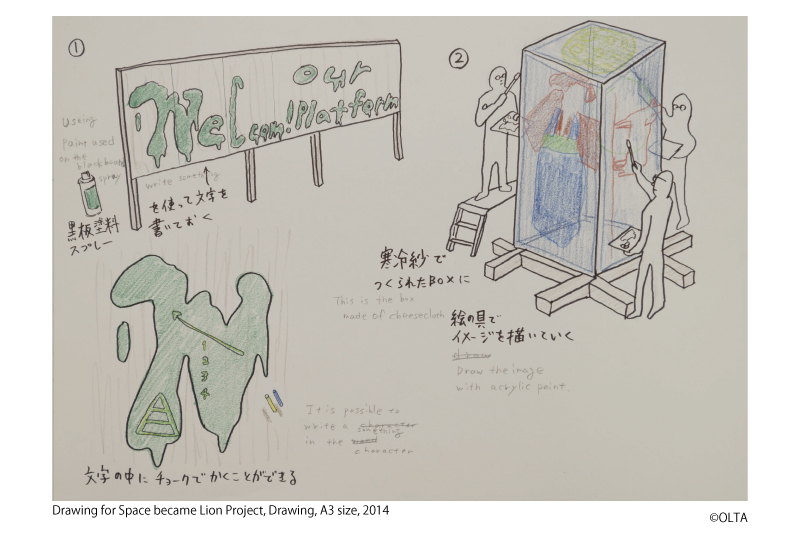 ①
Welcom! Our Platform
Useing
paint used
on the blackboard
spray
write something
を使って文字を
書いておく
黒板塗料
スプレー
1
2
3
4
It is possible to
write a character
something
in the
character
文字の中にチョークでかくことができる
②
寒冷紗で
つくられたBOXに
This is the box
made of cheesecloth
絵の具で
イメージを描いていく
draw
Draw the image
with acrylic paint.
Drawing for Space became Lion Project, Drawing, A3 size, 2014
©OLTA